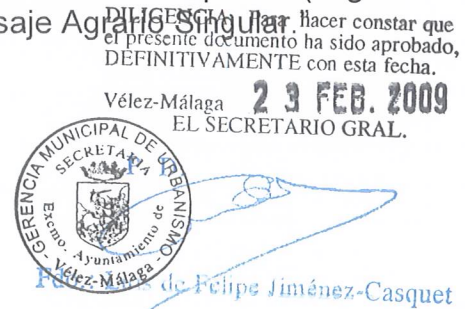 saje Agrario Singular.
DILIGENCIA. Para hacer constar que
el presente documento ha sido aprobado,
DEFINITIVAMENTE con esta fecha.
Vélez-Málaga 23 FEB. 2009
EL SECRETARIO GRAL.
GERENCIA MUNICIPAL DE URBANISMO
SECRETARIA
Excmo. Ayuntamiento de
Vélez-Málaga
Fdo.: Luis de Felipe Jiménez-Casquet